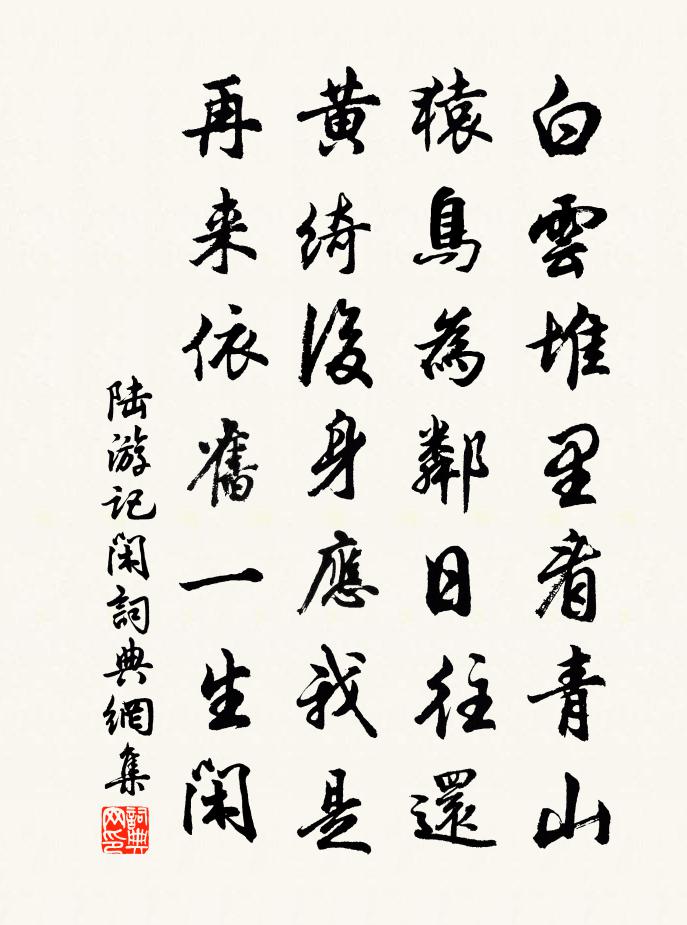 白雲堆里看青山
猿鳥為鄰日往還
黃綺後身應我是
再来依舊一生閑
陆游記閑詞典網集
詞典网印